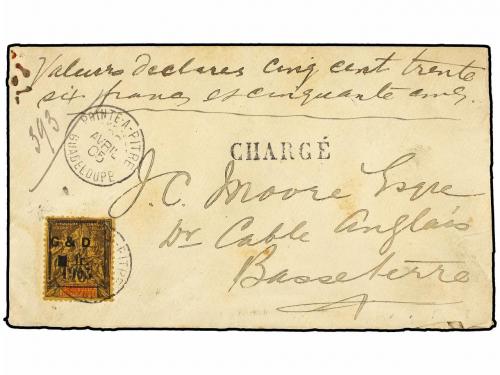 Valeurs declares cinq cent trente
six francs et cinquante cmes.
393
POINTE-A-PITRE
AVRIL
05
GUADELOUPE
CHARGÉ
J. C. Moore Esqre
Dr Cable Anglais
Basseterre
G & D
1903